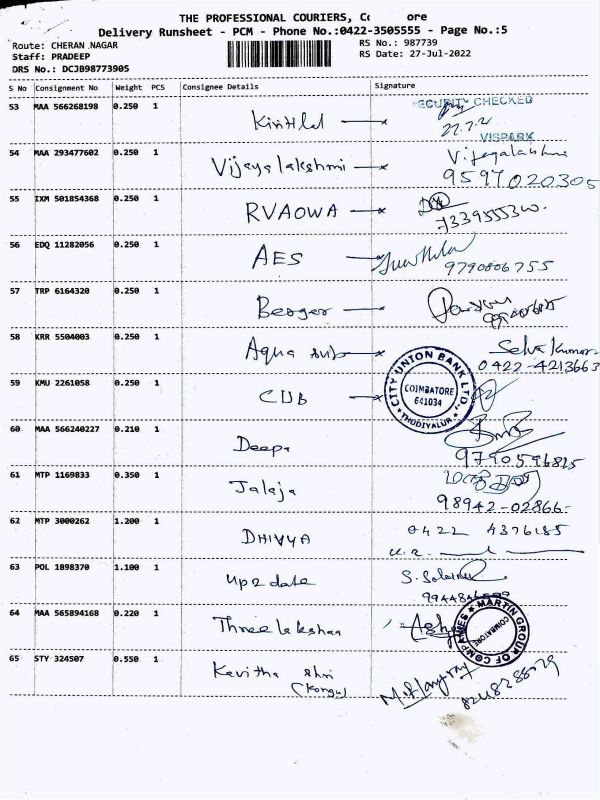 THE PROFESSIONAL COURIERS, ore
Delivery Runsheet - PCM - Phone No.:0422-3505555 - Page No.:5
Route: CHERAN NAGAR RS No.: 987739
Staff: PRADEEP RS Date: 27-Jul-2022
DRS No.: DCJB98773905
S No Consignment No Weight PCS Consignee Details Signature
53 MAA 566268198 0.250 1 SECURITY CHECKED
VISPARK
54 MAA 293477602 0.250 1 Vijayalakshmi Vijayalakshmi
9597020305
55 IXM 501854368 0.250 1 RVAOWA
56 EDQ 11282056 0.250 1 AES
9790806755
57 TRP 6164320 0.250 1 Berger
58 KRR 5504003 0.250 1 Aqua sub Selva Kumar
0422-4213663
59 KMU 2261058 0.250 1 CUB CITY UNION BANK LTD.,
COIMBATORE
641034
THUDIYALUR
60 MAA 566240227 0.210 1 Deepa
61 MTP 1169833 0.350 1 Jalaja
98942-02866-
62 MTP 3000262 1.200 1 DHIVYA 0422 4376185
63 POL 1898370 1.100 1 up2date
64 MAA 565894168 0.220 1 MARTIN GROUP OF COMPANIES
COIMBATORE
65 STY 324507 0.550 1 Kavitha shri
(Kongu)